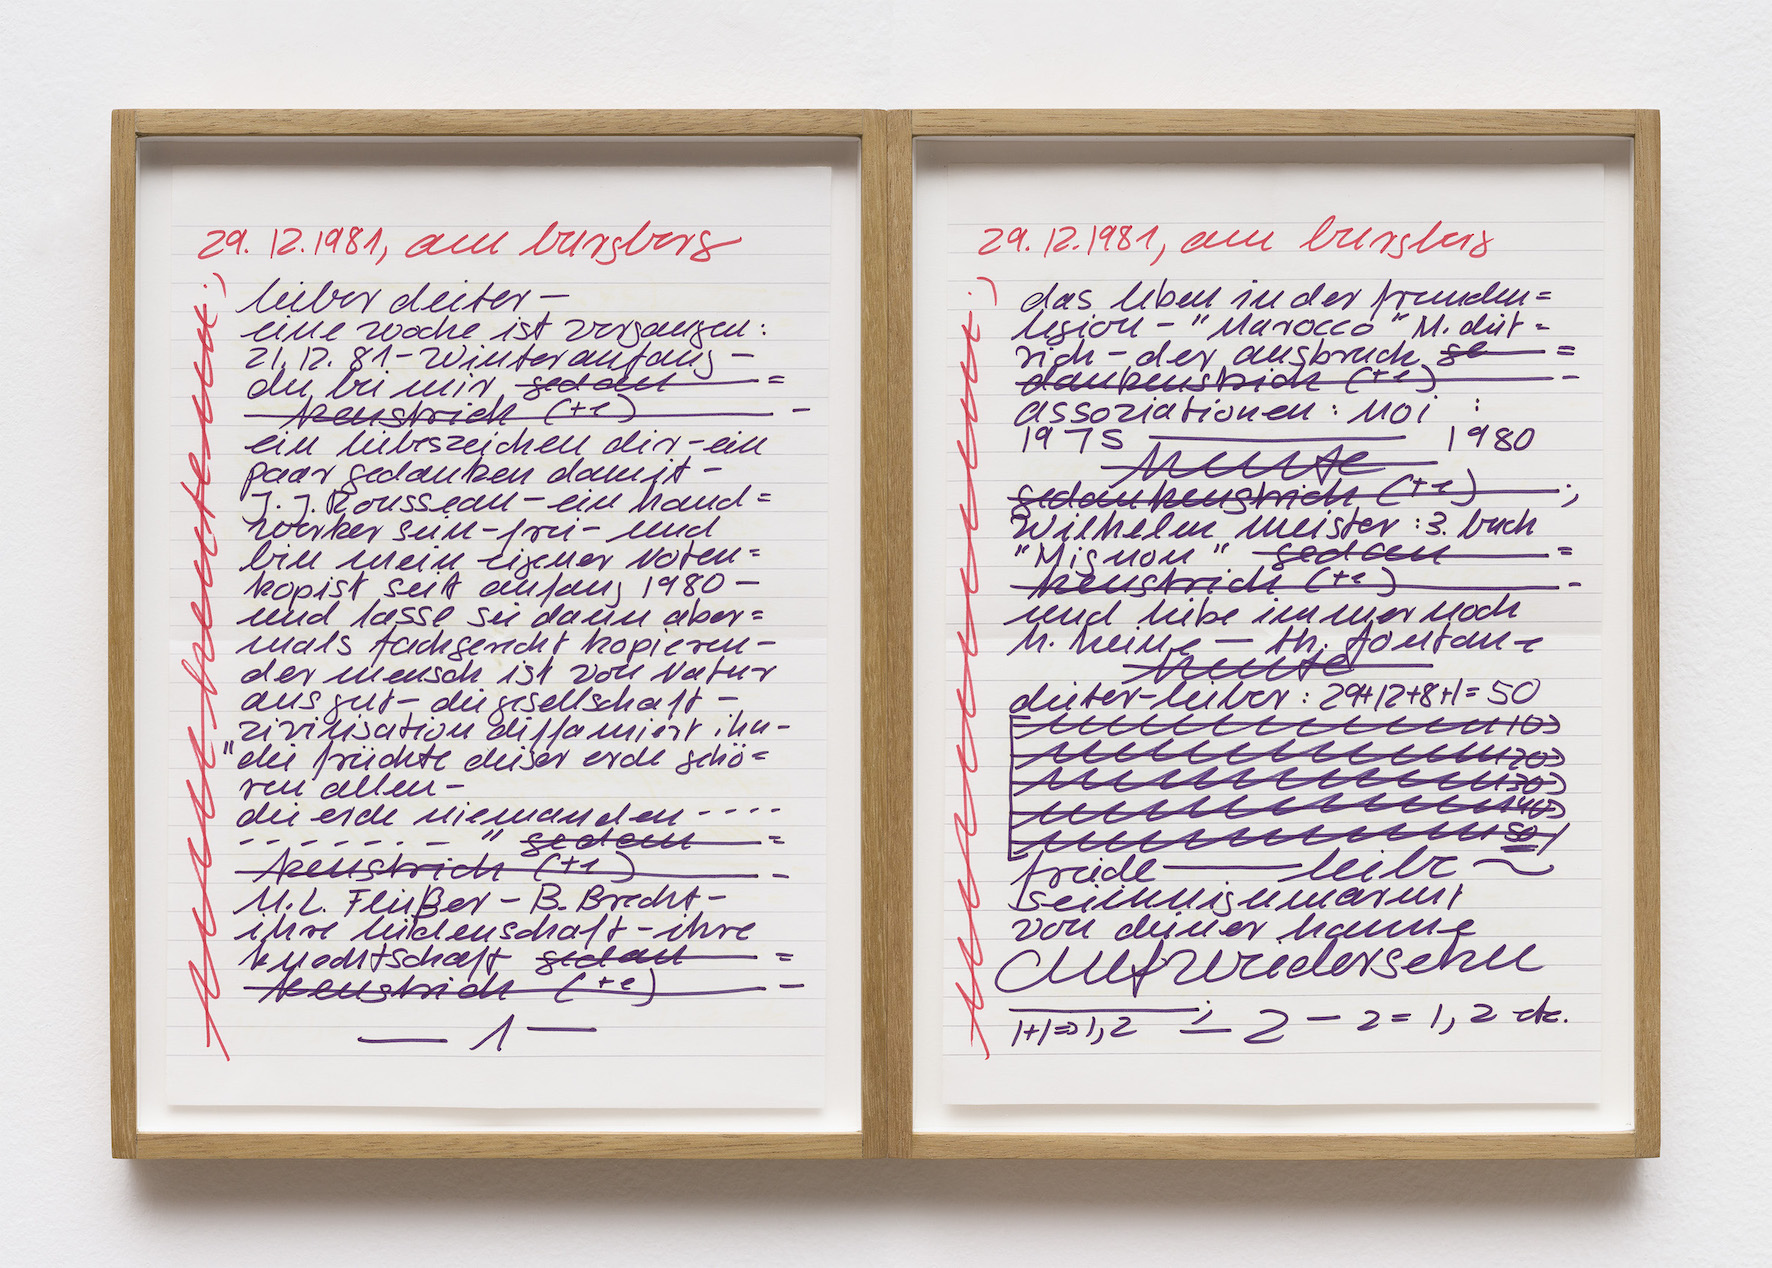 29.12.1981, am burgberg
heute
lieber dieter –
eine woche ist vergangen:
21.12.81 – winteranfang –
du bei mir gedan =
kenstrich (+1) –
ein liebeszeichen dir – ein
paar gedanken damit –
J. J. Rousseau – ein hand =
werker sein – frei – und
bin mein eigener noten =
kopist seit anfang 1980 –
und lasse sie dann aber =
mals fachgerecht kopieren –
der mensch ist von natur
aus gut – die gesellschaft –
zivilisation diffamiert ihn –
"die früchte dieser erde gehö =
ren allen –
die erde niemanden - - - -
- - - - - - - - " gedan =
kenstrich (+1) –
M. L. Fleißer – B. Brecht –
ihre leidenschaft – ihre
knechtschaft gedan =
kenstrich (+1) –
— 1 —
29.12.1981, am burgberg
das leben in der fremden =
legion – "Marocco" M. diet =
rich – der ausbruch ge =
dankenstrich (+1) –
assoziationen : moi :
1975 — 1980
heute
gedankenstrich (+1) — ;
Wilhelm meister : 3. buch
"Mignon" gedan =
kenstrich (+1) –
und liebe immer noch
h. heine — th. fontane
heute
dieter – lieber : 29+12+8+1 = 50
10)
20)
30)
40)
50)
freude — liebe ~
sei innig umarmt
von deiner hanne
Auf Wiedersehn
1+1=>1,2 — 2 — 2 = 1, 2 etc.